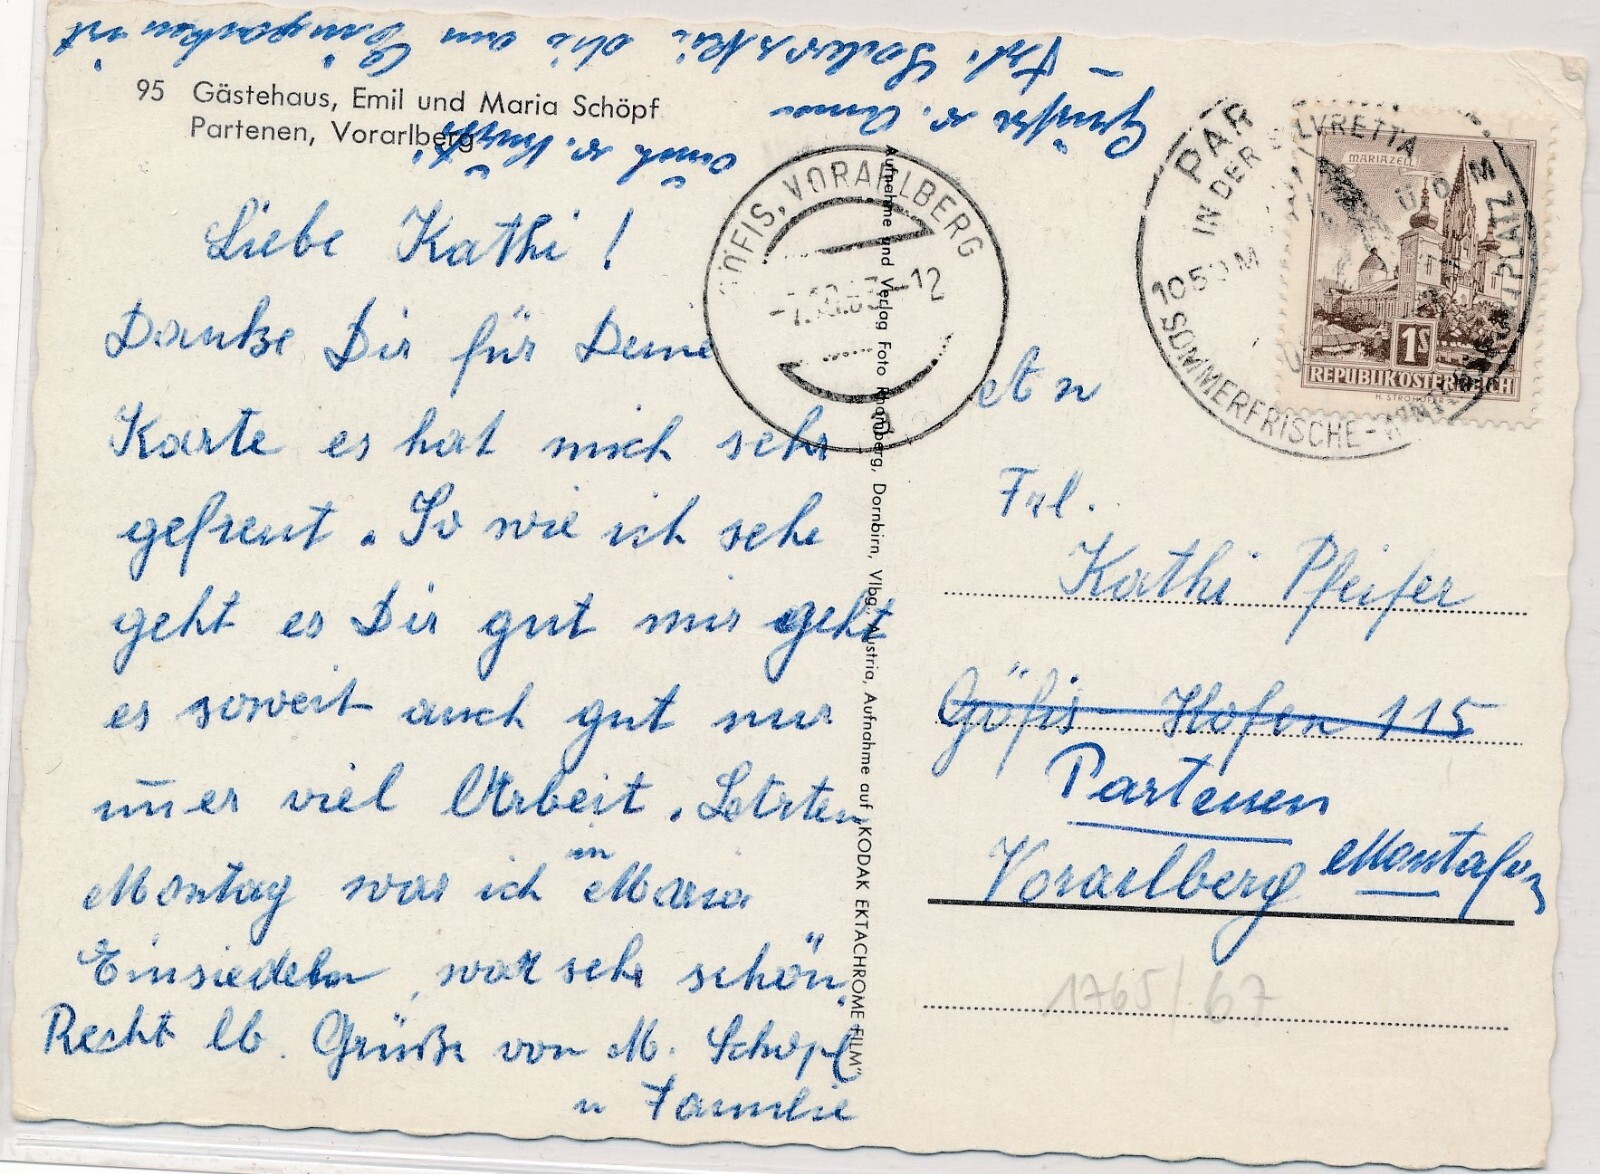 95 Gästehaus, Emil und Maria Schöpf
Partenen, Vorarlberg
Liebe Kathi!
Danke Dir für Deine
Karte es hat mich sehr
gefreut. So wie ich sehe
geht es Dir gut mir geht
es soweit auch gut nur
im̄er viel Arbeit. Letzten
Montag war ich in Maria
Einsiedeln, war sehr schön.
Recht lb. Grüße von M. Schöpf
u Familie
Grüße v. Anna
auch v.
Aufnahme und Verlag Foto Rhomberg, Dornbirn, Vlbg., Austria, Aufnahme auf „KODAK EKTACHROME-FILM"
GÖFIS, VORARLBERG
-7.10.63-12
a
PAR
IN DER SILVRETTA
1050 M
SOMMERFRISCHE-
MARIAZELL
1S
REPUBLIK ÖSTERREICH
H. STROHOFER
An
Frl.
Kathi Pfeifer
Göfis Hofen 115
Partenen
Vorarlberg Montafon
1765/67